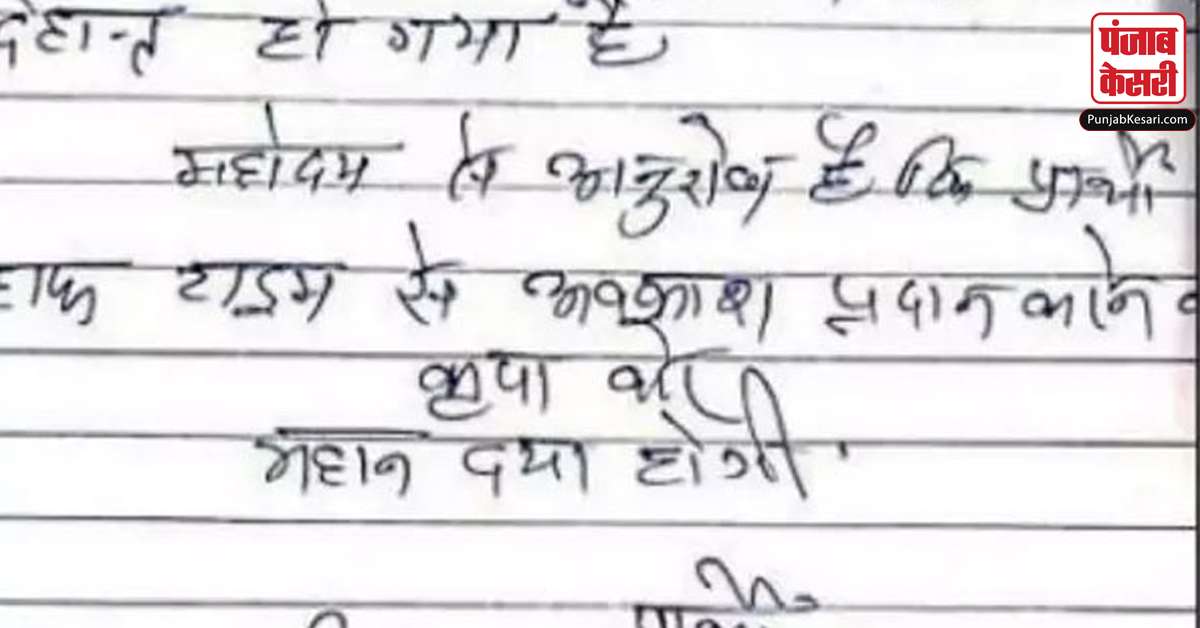 देहान्त हो गया है
महोदय से अनुरोध है कि प्रार्थी
हाफ टाइम से अवकाश प्रदान करने
कृपा करें
महान दया होगी
पंजाब
केसरी
PunjabKesari.com